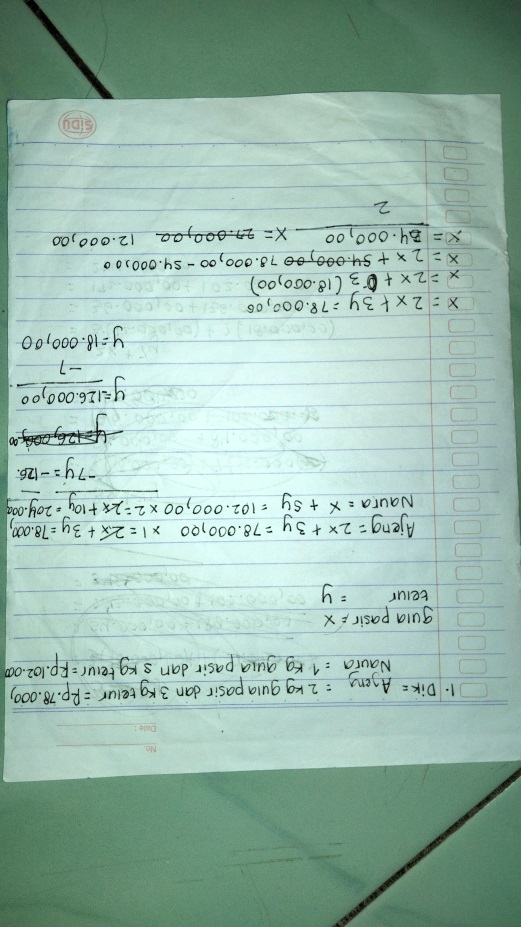 No.
Date :
1. Dik = Ajeng = 2 kg gula pasir dan 3 kg telur = Rp. 78.000,
Naura = 1 kg gula pasir dan 5 kg telur = Rp. 102.000
gula pasir = x
telur = y
Ajeng = 2x + 3y = 78.000,00 x1 = 2x + 3y = 78.000,
Naura = x + 5y = 102.000,00 x2 = 2x + 10y = 204.000
-7y = -126.
y = 126.000,00
-7
y = 18.000,00
x = 2x + 3y = 78.000,00
x = 2x + 3 (18.000,00)
x = 2x + 54.000,00 78.000,00 - 54.000,00
x = 34.000,00 x = 27.000,00 12.000,00
2
SiDU